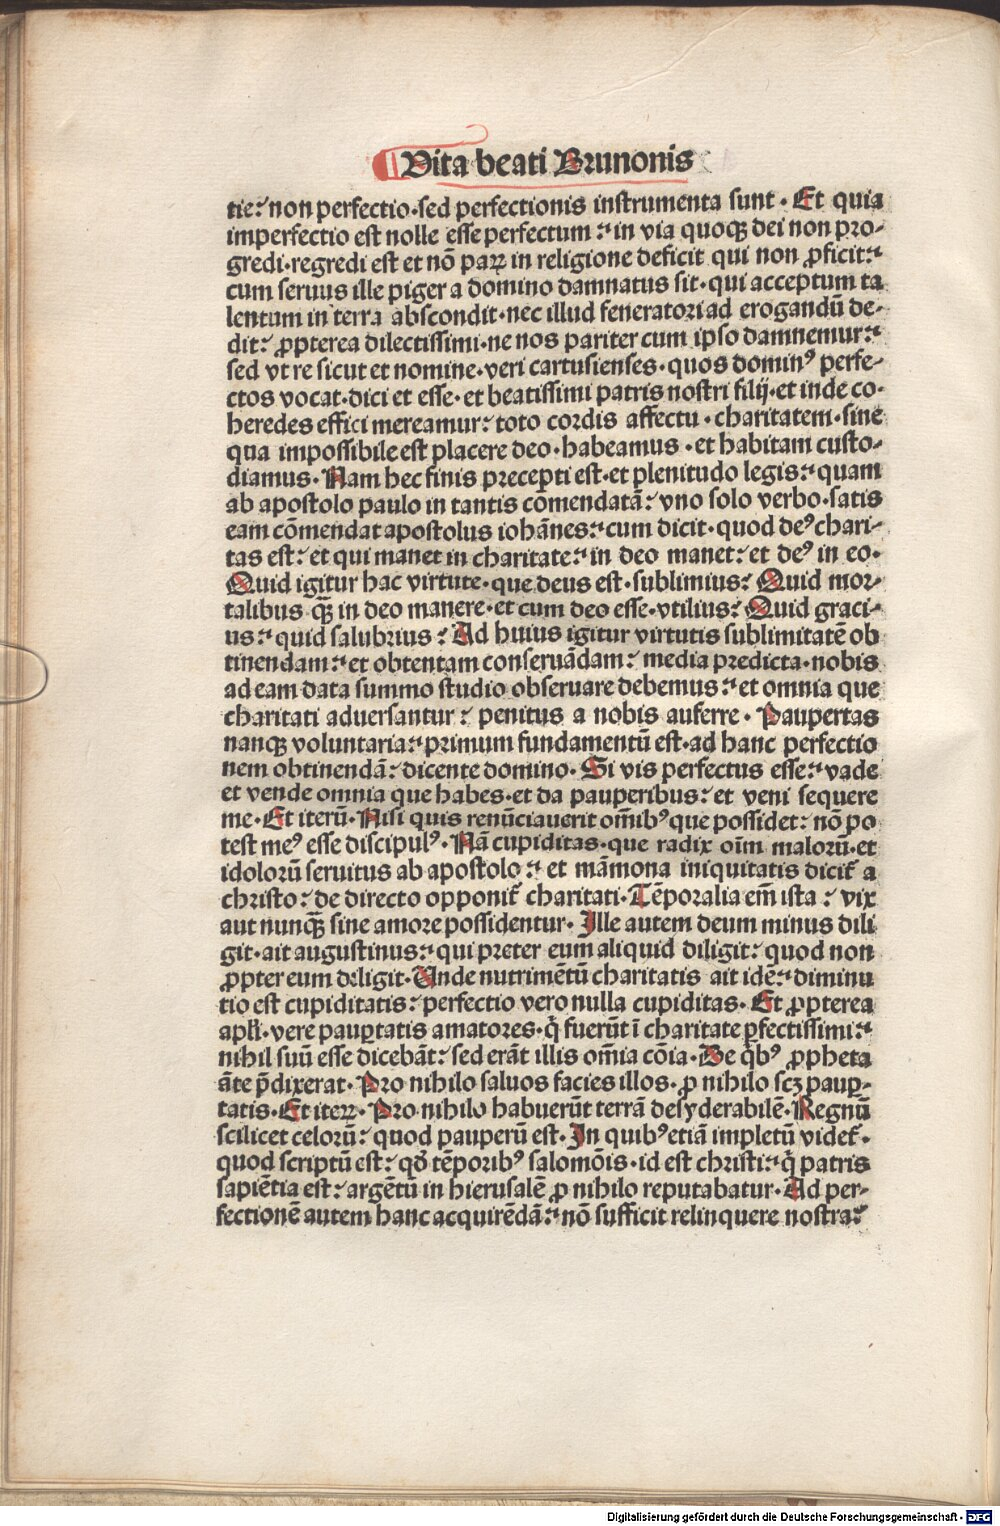 Vita beati Brunonis
tie: non perfectio·sed perfectionis instrumenta sunt · Et quia
imperfectio est nolle esse perfectum : in via quoqꝫ dei non pro-
gredi·regredi est et nō paꝝ in religione deficit qui non ꝓficit:
cum seruus ille piger a domino damnatus sit·qui acceptum ta
lentum in terra abscondit·nec illud feneratori ad erogandū de-
dit: ꝓpterea dilectissimi·ne nos pariter cum ipso damnemur:
sed vt re sicut et nomine·veri cartusienses·quos dominꝰ perfe-
ctos vocat·dici et esse·et beatissimi patris nostri filij·et inde co-
heredes effici mereamur: toto cordis affectu·charitatem·sine
qua impossibile est placere deo·habeamus·et habitam custo-
diamus·Nam hec finis precepti est·et plenitudo legis: quam
ab apostolo paulo in tantis cōmendatā: vno solo verbo·satis
eam cōmendat apostolus iohānes: cum dicit·quod deꝰ chari-
tas est: et qui manet in charitate: in deo manet: et deꝰ in eo·
Quid igitur hac virtute·que deus est·sublimius: Quid mor-
talibus qꝫ̄ in deo manere·et cum deo esse·vtilius: Quid graci-
us: quid salubrius: Ad huius igitur virtutis sublimitatē ob
tinendam: et obtentam conseruādam: media predicta·nobis
ad eam data summo studio obseruare debemus: et omnia que
charitati aduersantur: penitus a nobis auferre· Paupertas
nanqꝫ voluntaria: primum fundamentū est·ad hanc perfectio
nem obtinendā: dicente domino·Si vis perfectus esse: vade
et vende omnia que habes·et da pauperibus: et veni sequere
me·Et iterū·Nisi quis renūciauerit om̄ibꝰ que possidet: nō po
test meꝰ esse discipulꝰ·Nā cupiditas·que radix oīm malorū·et
idolorū seruitus ab apostolo: et māmona iniquitatis dicit̄ a
christo: de directo opponit̄ charitati·Tēporalia em̄ ista: vix
aut nunqꝫ̄ sine amore possidentur· Ille autem deum minus dili
git·ait augustinus: qui preter eum aliquid diligit: quod non
ꝓpter eum diligit·Unde nutrimētū charitatis ait idē: diminu
tio est cupiditatis: perfectio vero nulla cupiditas· Et ꝓpterea
apl̄i·vere paupꝑtatis amatores·q̄ fuerūt ī charitate ꝑfectissimi:
nihil suū esse dicebāt: sed erāt illis om̄ia cōia·De qͥbꝰ ꝓpheta
āte p̄dixerat·Pro nihilo saluos facies illos·ꝓ nihilo scꝫ pauꝑ-
tatis·Et iteꝝ·Pro nihilo habuerūt terrā desyderabilē·Regnū
scilicet celorū: quod pauperū est·In quibꝰ etiā impletū videt̄·
quod scriptū est: qđ tēporibꝰ salomōis·id est christi: q̄ patris
sapiētia est: argētū in hierusalē ꝓ nihilo reputabatur·Ad per-
fectionē autem hanc acquirēdā: nō sufficit relinquere nostra:
Digitalisierung gefördert durch die Deutsche Forschungsgemeinschaft - DFG